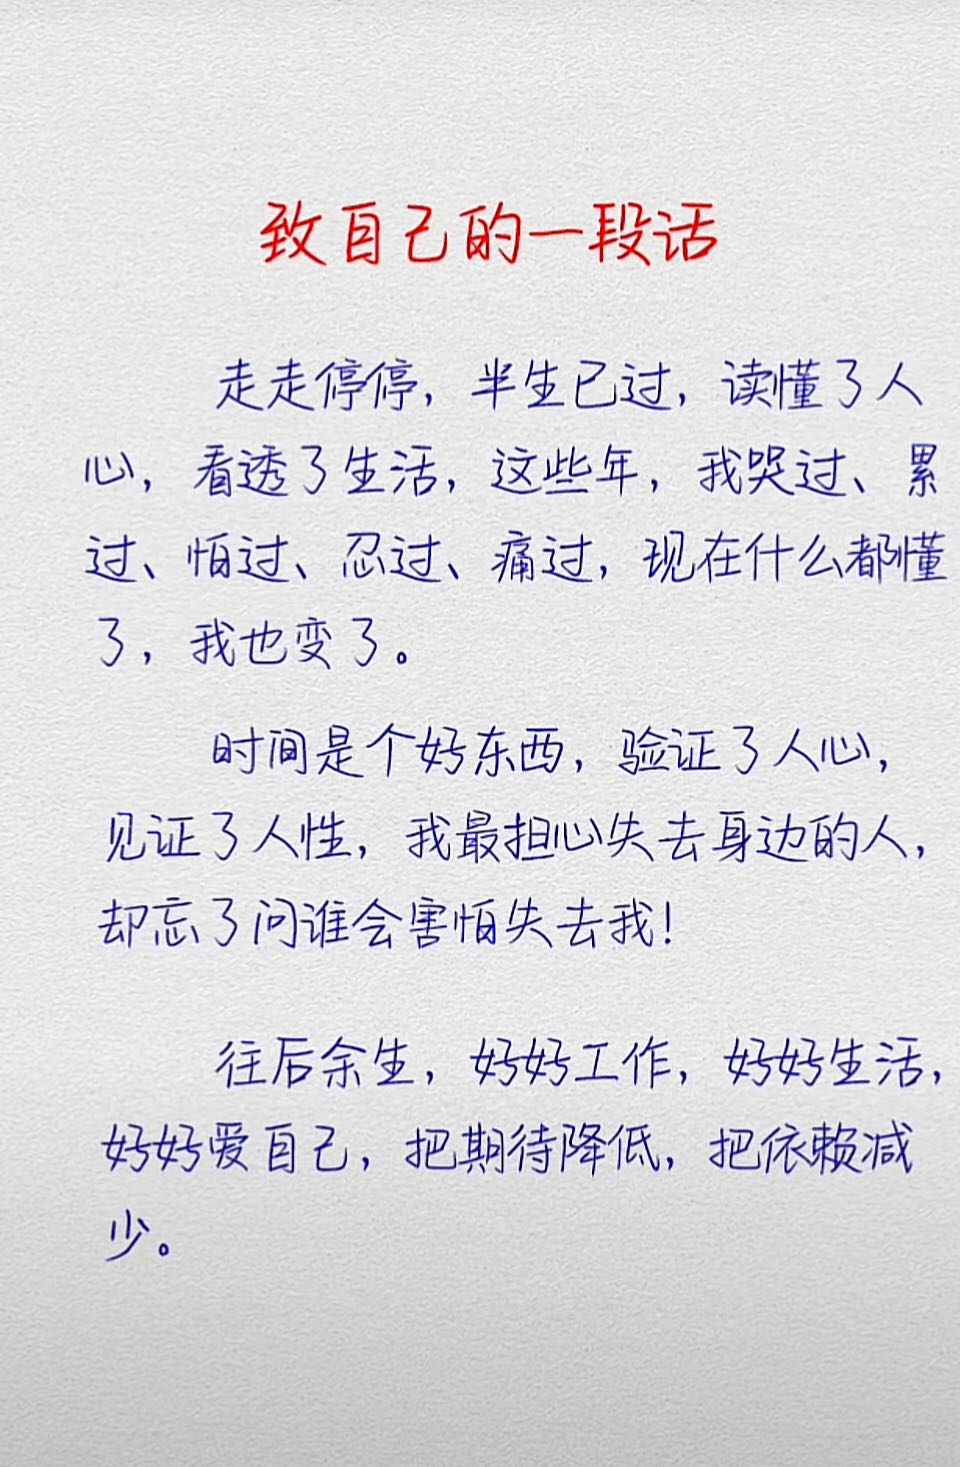 致自己的一段话
走走停停，半生已过，读懂了人
心，看透了生活，这些年，我哭过、累
过、怕过、忍过、痛过，现在什么都懂
了，我也变了。
时间是个好东西，验证了人心，
见证了人性，我最担心失去身边的人，
却忘了问谁会害怕失去我！
往后余生，好好工作，好好生活，
好好爱自己，把期待降低，把依赖减
少。